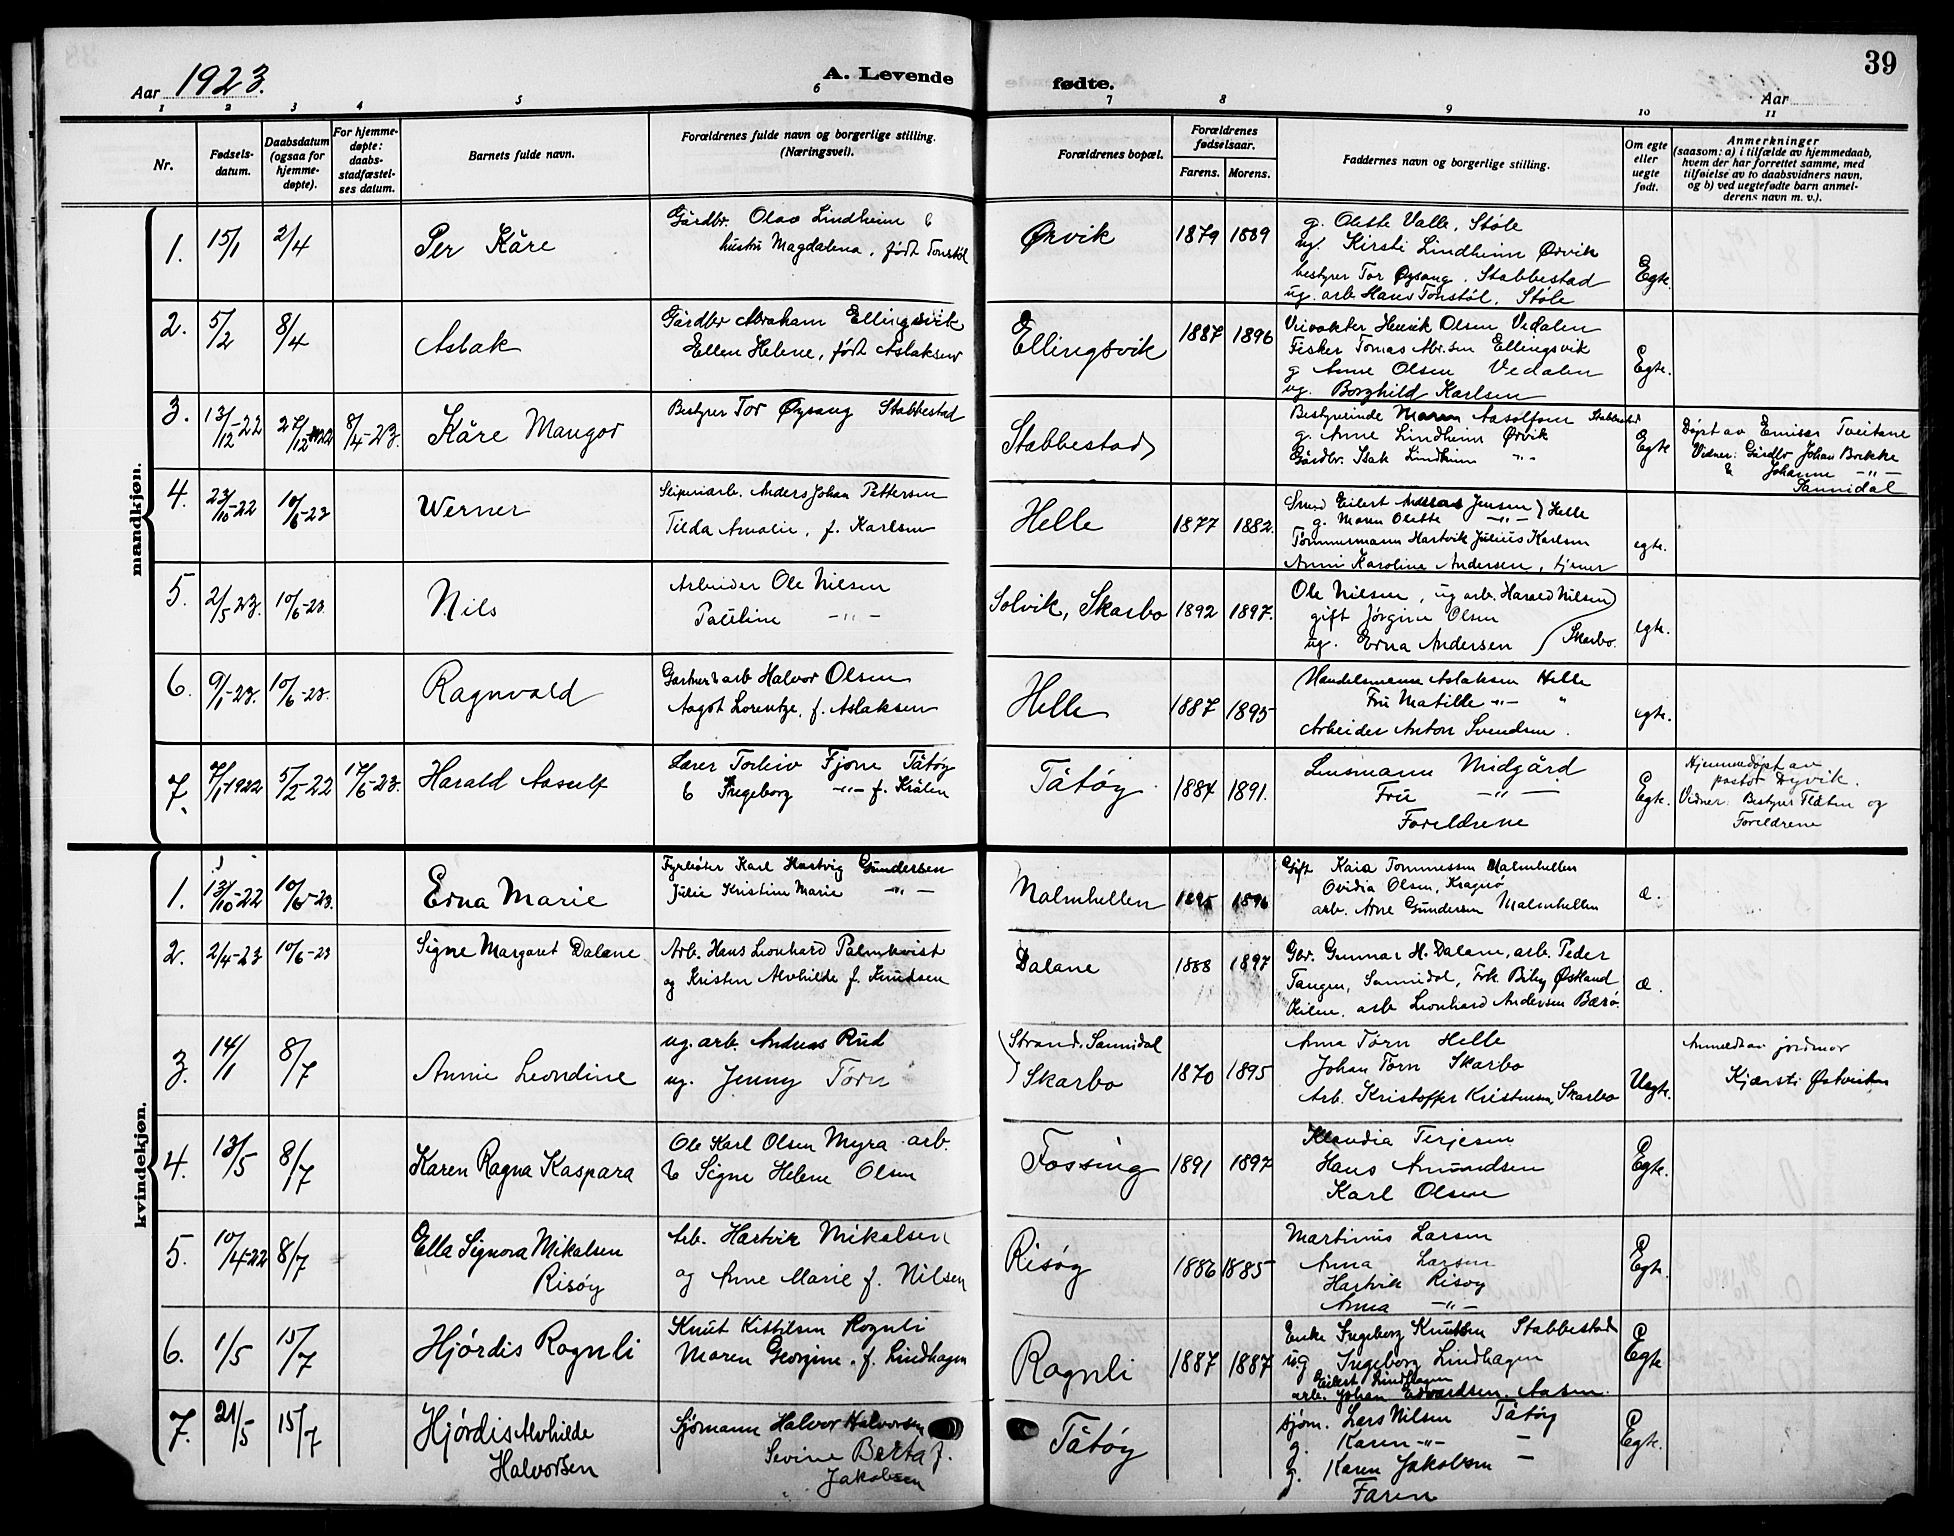 39
Aar 1923.
A. Levende fødte.
Aar
1 2 3 4 5 6 7 8 9 10 11
Nr.
Fødsels-
datum.
Daabsdatum
(ogsaa for
hjemme-
døpte).
For hjemme-
døpte:
daabs-
stadfæstel-
ses datum.
Barnets fulde navn.
Forældrenes fulde navn og borgerlige stilling.
(Næringsvei).
Forældrenes bopæl.
Forældrenes
fødselsaar.
Farens. Morens.
Faddernes navn og borgerlige stilling.
Om egte
eller
uegte
født.
Anmerkninger
(saasom: a) i tilfælde av hjemmedaab,
hvem der har forrettet samme, med
tilføielse av to daabsvidners navn,
og b) ved uegtefødte barn anmel-
derens navn m. v.).
mandkjøn.
1. 15/1 2/4 Per Kåre
Gårdbr. Olav Lindheim &
hustru Magdalena, født Tonstøl
Ørvik 1879 1889
g. Olette Valle, Støle
ug. Kirsti Lindheim Ørvik
bestyrer Tor Øysang, Stabbestad
ug. arb. Hans Tonstøl, Støle
Egte.
2. 5/2 8/4 Aslak
Gårdbr Abraham Ellingsvik
Ellen Helene, født Aslaksen
Ellingsvik 1887 1896
Henrik Olsen Vedalen
Fisker Tomas Abr.sen Ellingsvik
g Anne Olsen Vedalen
ug. Borghild Karlsen
Egte.
3. 13/12-22 27/12 1922 8/4-23. Kåre Mangor
Bestyrer Tor Øysang Stabbestad
Stabbestad
Bestyrerinde Maren Aasolfsen Stabbestad
g. Anne Lindheim Ørvik
Gårdbr. Isak Lindheim -"-
Egte
Døpt av Emisær Tveitane
Vidner: Gårdbr Johan Brekke
& Johanne -"-
Sannidal
4. 23/10-22 10/6-23 Werner
Sliperiarb. Anders Johan Pettersen
Tilda Amalie, f. Karlsen
Helle 1877 1882.
Smed Eilert Andreas Jensen } Helle
g. Maren Olette -"-
Tømmermann Hartvik Julius Karlsen
Anni Karoline Andersen, tjener
egte.
5. 2/5-23. 10/6-23. Nils
Arbeider Ole Nilsen
Pauline -"-
Solvik, Skarbo 1892 1897.
Ole Nilsen, ug arb. Harald Nilsen
gift Jørgine Olsen
ug. Erna Andersen Skarbo.
egte.
6. 9/1-23. 10/6-23. Ragnvald
arb Halvor Olsen
Aagot Lorentze, f. Aslaksen
Helle 1887 1895
Handelsmann Aslaksen Helle
Fru Matille -"- "
Arbeider Anton Svendsen.
egte.
7. 7/1-1922 5/2-22 17/6-23. Harald Aasulf
Lærer Torleiv Fjone Tåtøy
& Ingeborg -"- f. Kråten
Tåtøy 1884 1891.
Lensmann Midgård
Fru -"-
Foreldrene
Egte.
Hjemmedøpt av
pastor Dyvik.
Vidner: Bestyrer Flåten og
Foreldrene
kvindekjøn.
1. 13/10-22 10/6-23. Erna Marie
Fyrbøter Karl Hartvig Gundersen
Julie Kristine Marie -"-
Malmhellen 1895 1896
Gift Kaia Tommessen Malmhellen
Ovidia Olsen, Kragerø
arb. Arne Gundersen Malmhellen
æ.
2. 2/4-23 10/6-23 Signe Margaret Dalane
Arb. Hans Leonhard Palmkvist
og Kristen Alvhilde f. Knudsen
Dalane 1888 1897
Gbr. Gunnar H. Dalane, arb. Peder
Tangen, Sannidal, Frk. Østlund
arb Leonhard Andersen Bærø.
æ.
3. 14/1 8/7 Annie Leondine
ug. arb. Andreas Rud
ug. Jenny Tørn
Strand, Sannidal
Skarbo 1870 1895
Anna Tørn Helle
Johan Tørn Skarbo
Arb. Kristoffer Kristensen, Skarbo
Uegte.
Anmeldt av jordmor
Kjærsti
4. 13/5 8/7 Karen Ragna Kaspara
Ole Karl Olsen Myra arb.
& Signe Helene Olsen
Fossing 1891 1897
Klaudia Terjesen
Hans Amundsen
Karl Olsen
Egte.
5. 10/4-22 8/7 Ella Signora Mikalsen
Risøy
Arb. Hartvik Mikalsen
og Anne Marie f. Nilsen
Risøy 1886 1885
Martinus Larsen
Anna Larsen
Hartvik Risøy
Anna -"-
Egte.
6. 1/5 15/7 Hjørdis Rognli
Knut Kittilsen Rognli
Maren Georgine. f. Lindhagen
Rognli 1887 1887
Enke Ingeborg Knutsen Stabbestad
ug Ingeborg Lindhagen
Eilert Lindhagen
arb. Johan Edvardsen, Aasen.
Egte
7. 21/5 15/7 Hjørdis Alvhilde
Halvorsen
Sjømann Halvor Halvorsen
Sevine Berta f.
Jakobsen
Tåtøy
sjøm. Lars Nilsen Tåtøy
g. Karen -"- -
g. Karen Jakobsen -
Faren
Egte.